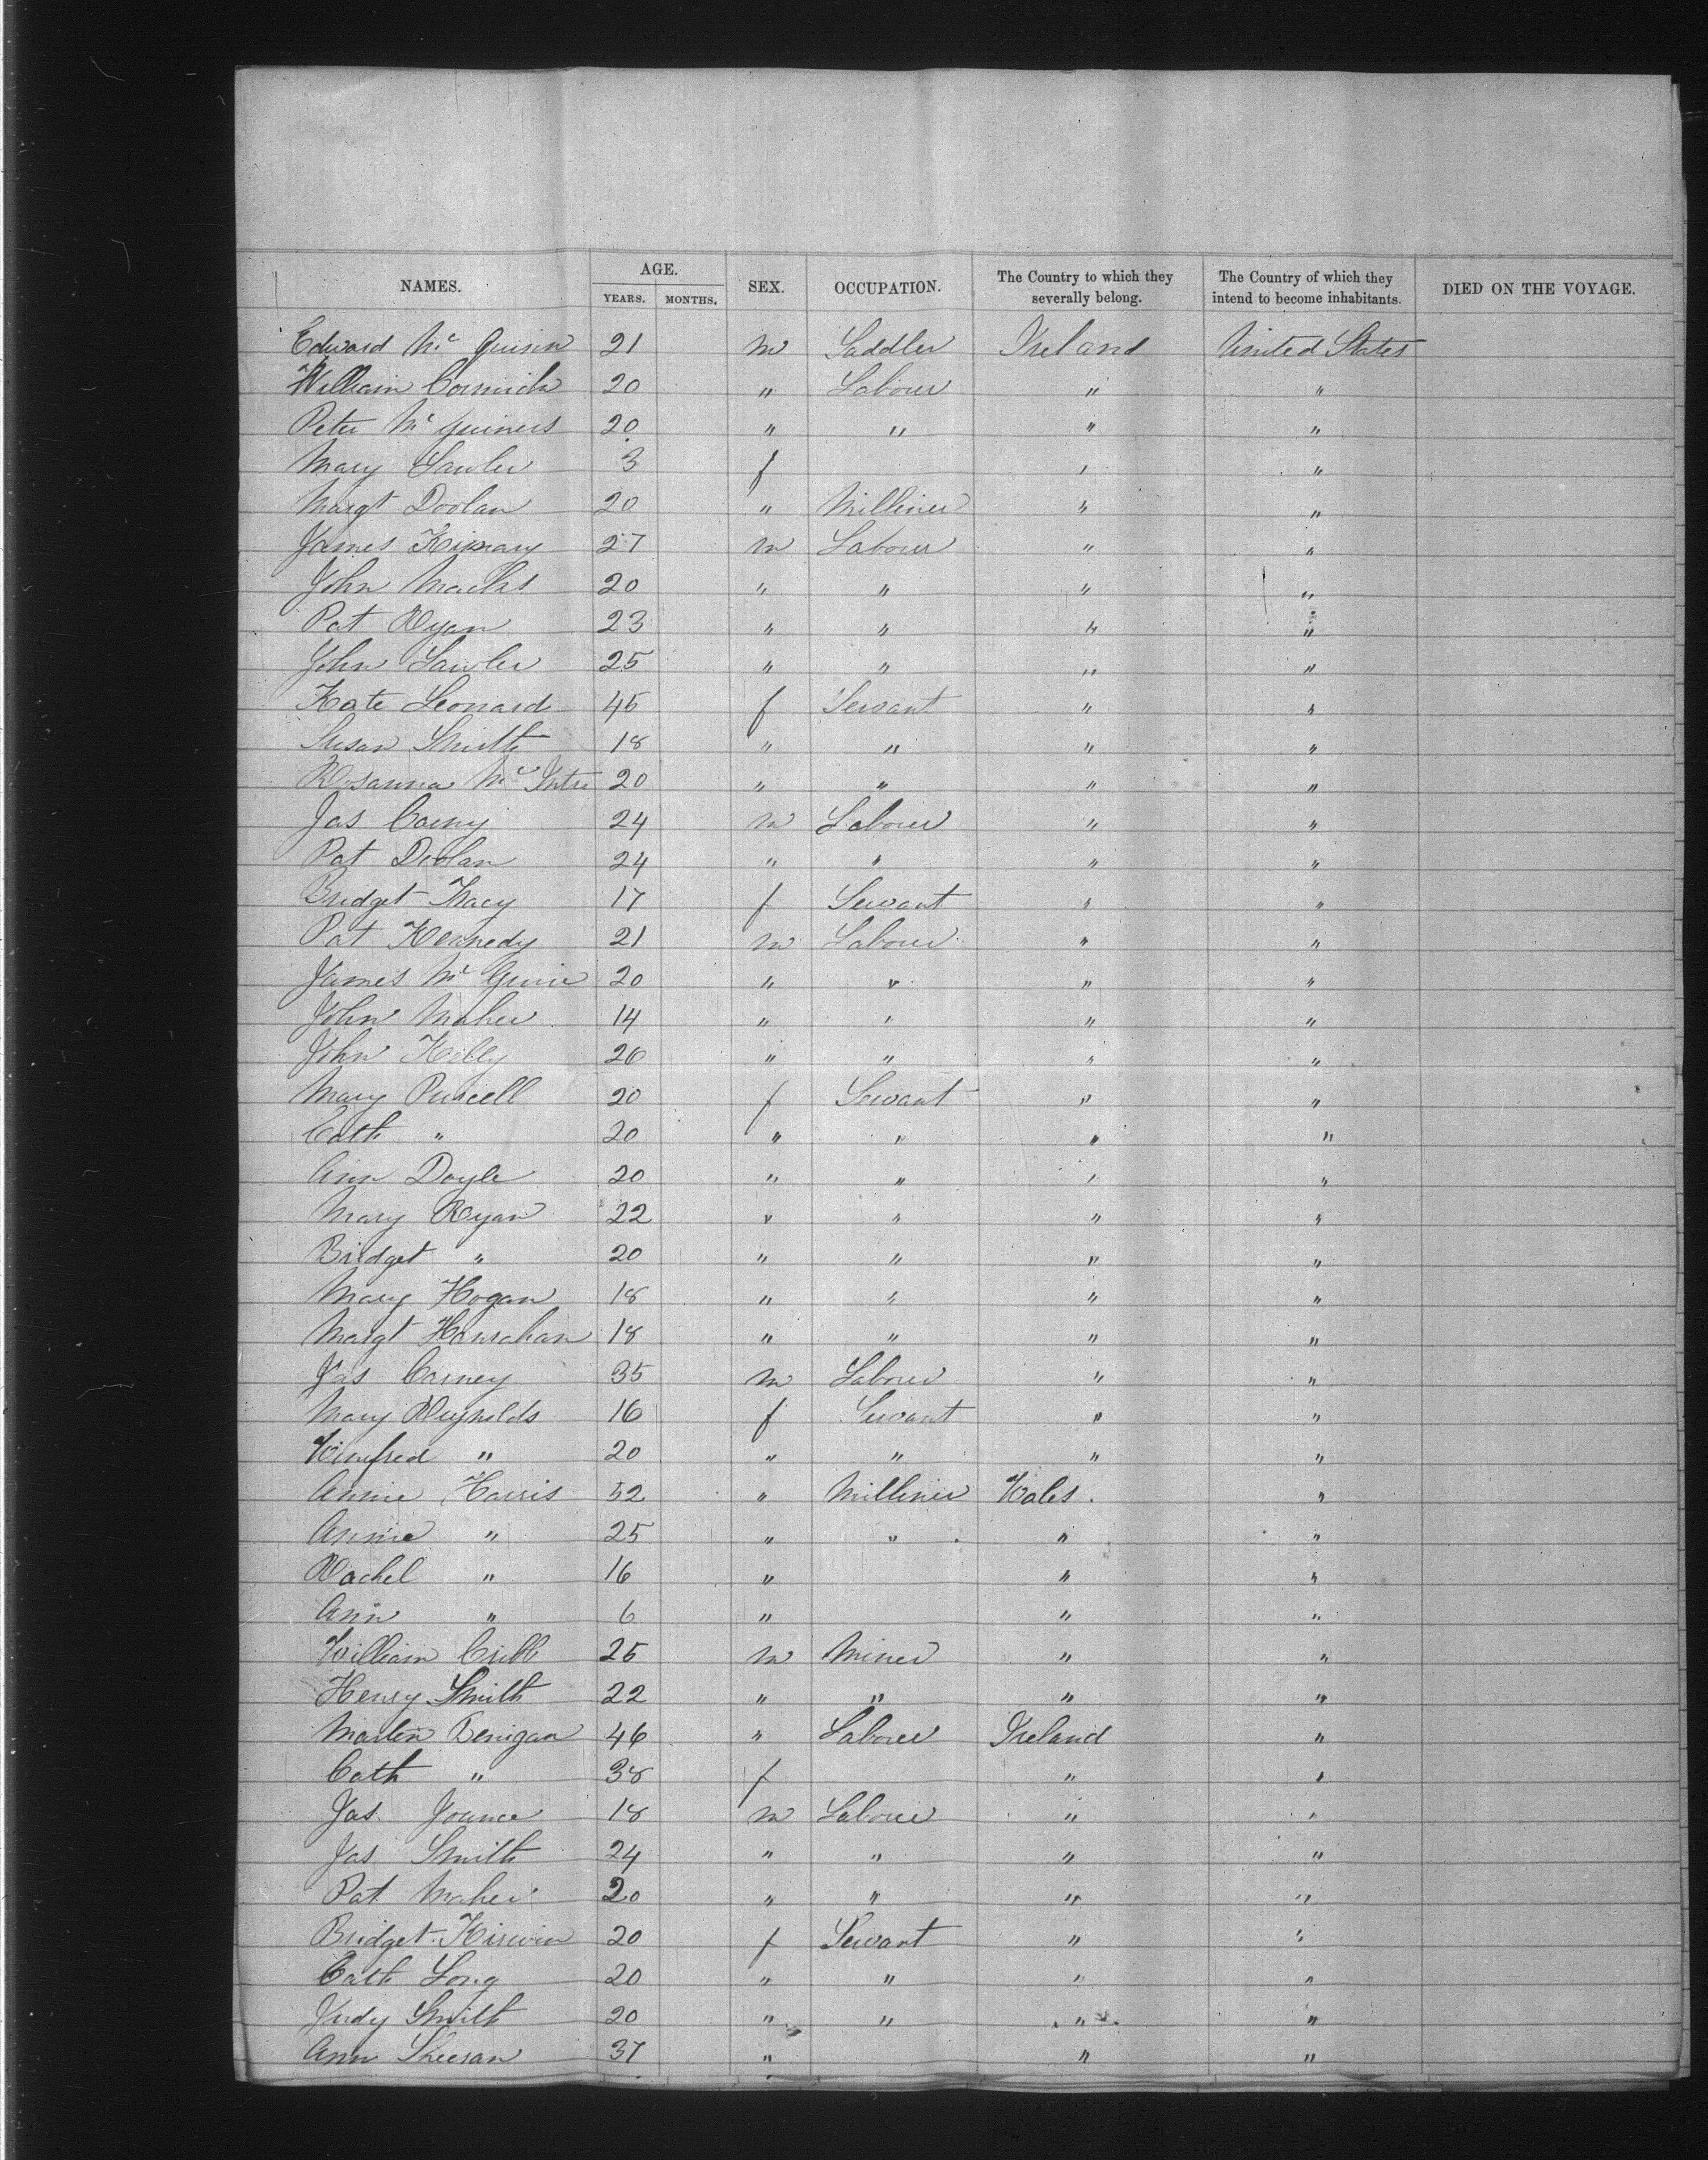 NAMES. AGE. SEX. OCCUPATION. The Country to which they severally belong. The Country of which they intend to become inhabitants. DIED ON THE VOYAGE.
YEARS. MONTHS.
Edward Mc Quinn 21 m Saddler Ireland United States
William Cormick 20 " Labour " "
Peter Mc Guiness 20 " " " "
Mary Lawler 3 f " "
Margt Doolan 20 " Milliner " "
James 27 m Labour " "
John 20 " " " "
Pat Ryan 23 " " " "
John Lawler 25 " " " "
Kate Leonard 45 f Servant " "
Susan Smith 18 " " " "
Rosanna Mc Intre 20 " " " "
Jas 24 m Labour " "
Pat Doolan 24 " " " "
Bridget 17 f Servant " "
Pat Kennedy 21 m Labour " "
James Mc 20 " " " "
John Maher 14 " " " "
John Kelly 26 " " " "
Mary Purcell 20 f Servant " "
Cath " 20 " " " "
Ann Doyle 20 " " " "
Mary Ryan 22 " " " "
Bridget " 20 " " " "
Mary Hogan 18 " " " "
Margt Hanrahan 18 " " " "
Jas Carney 35 m Labour " "
Mary Reynolds 16 f Servant " "
Winifred " 20 " " " "
Annie Harris 52 " Milliner Wales. "
Annie " 25 " " " "
Rachel " 16 " " "
Ann " 6 " " "
William Cribb 25 m Miner " "
Henry Smith 22 " " " "
Martin Benigan 46 " Labour Ireland "
Cath " 38 f " "
Jas. 18 m Labour " "
Jas Smith 24 " " " "
Pat Maher 20 " " " "
Bridget Kirwin 20 f Servant " "
Cath Long 20 " " " "
Judy Smith 20 " " " "
Ann Sheeran 37 " " "